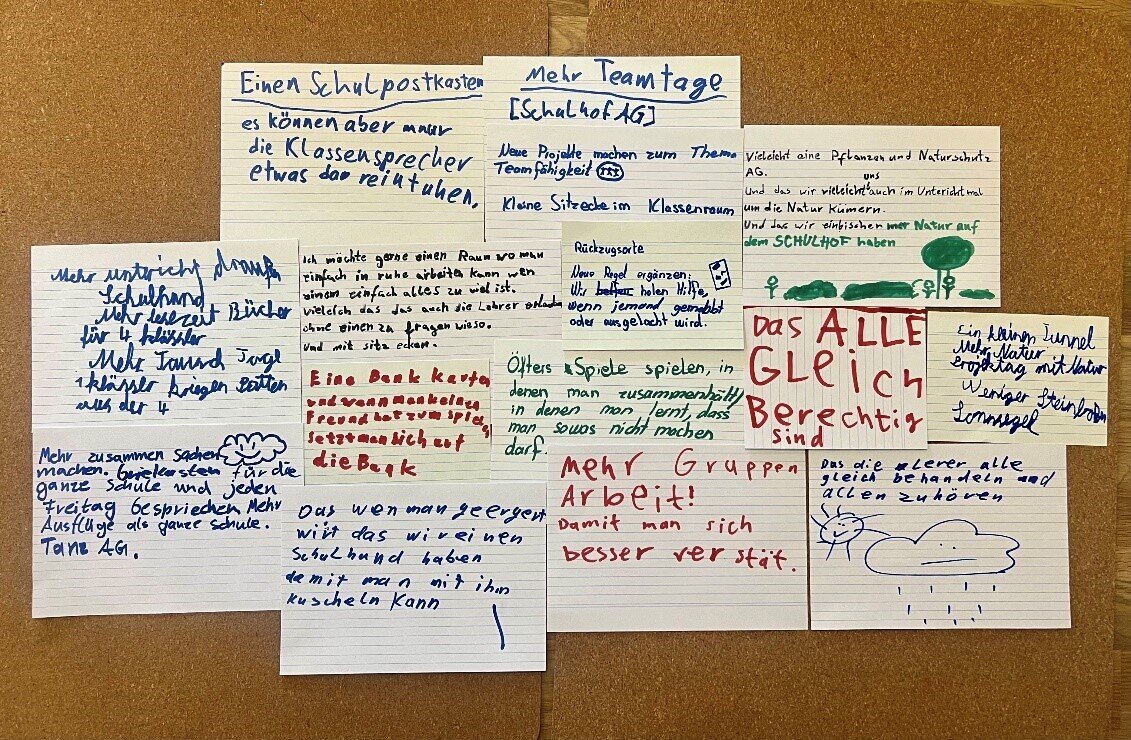 Einen Schulpostkasten
es können aber mnur
die Klassensprecher
etwas da reintuhen.
Mehr Teamtage
[Schulhof AG]
Neue Projekte machen zum Thema
Teamfähigkeit
Kleine Sitzecke im Klassenraum
Vieleicht aine Pflanzen und Naturschutz
AG.
Und das wir vieleicht uns auch im Unterichtmal
um die Natur Kümern.
Und das wir einbischen mer Natur auf
dem SCHULHOF haben
Mehr untricht draußen
Schulhund
Mehr lesezeit Bücher
für 4 klässler
Mehr
1 klässler kriegen
aus der 4
Ich möchte gerne einen Raum wo man
einfach in ruhe arbeiten kann wen
einem einfach alles zu viel ist.
vieleich das das auch die Lehrer erlauben
ohne einen zu fragen wieso.
und mit sitz ecken.
Rückzugsorte
Neue Regel ergänzen:
Wir helfen holen Hilfe,
wenn jemand gemobbt
oder ausgelacht wird.
Das ALLE
GLeich
Berechtig
sind
Ein kleinen Tunnel
Mehr Natur
Projektag mit Natur
Weniger Steinboden
Sonnsegel
Eine Bank karten
und wann man keinen
Freund hat zum spielen
setzt man sich auf
die Bank
Öfters Spiele spielen, in
denen man zusammenhält/
in denen man lernt, dass
man sowas nicht machen
darf.
Mehr zusammen sachen
machen. Briefkasten für die
ganze Schule und jeden
Freitag bespriechen Mehr
Ausflüge als ganze schule.
Tanz AG.
Das wen man geergert
wirt das wir einen
Schulhund haben
damit man mit ihm
kuscheln kann
Mehr Gruppen
Arbeit!
Damit man sich
besser verstät.
Das die Lerer alle
gleich behandeln und
allen zuhören